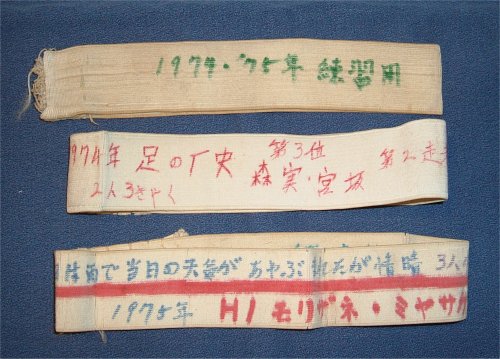 1974・'75年 練習用
1974年 足の厂史 第3位 第2走
2人3きゃく 森実・宮坂
で当日の天気があやぶまれたが 晴 3人
1975年 H1 モリザネ・ミヤサカ